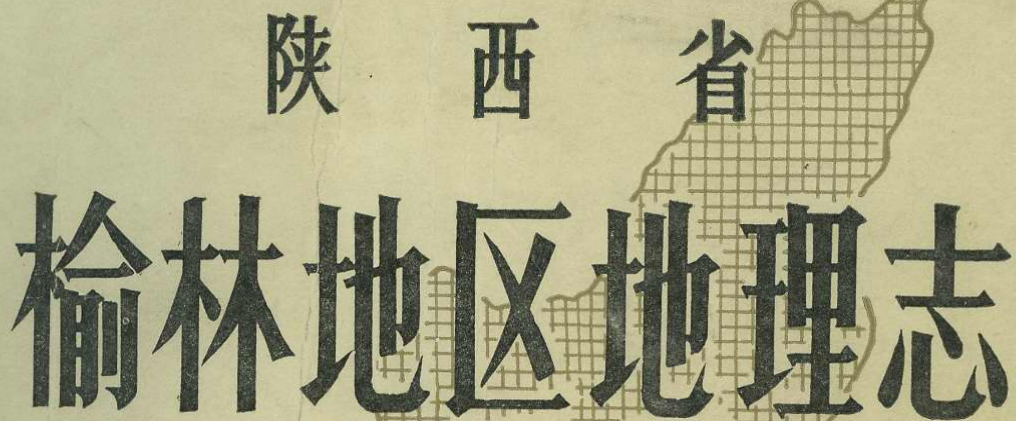 陕西省
榆林地区地理志